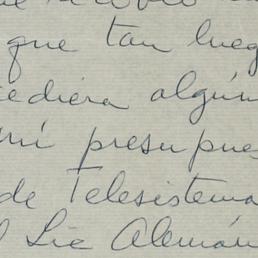 que tan lueg
cediera algún
mi presupues
de Telesistema
l Lic Alemán